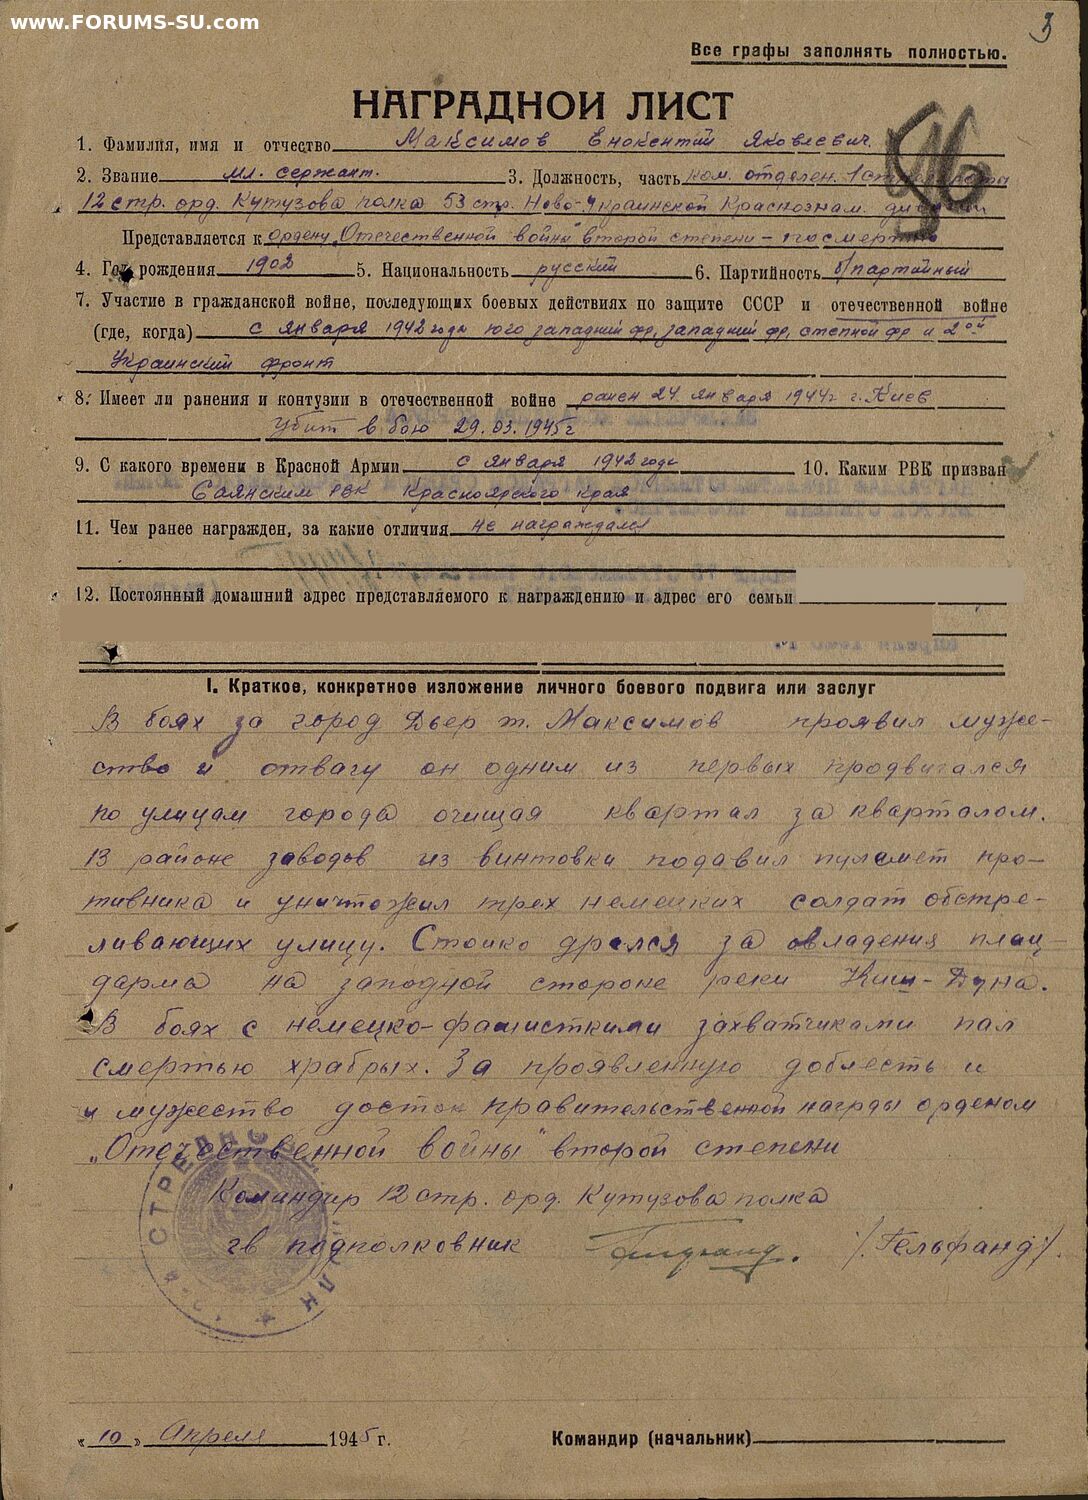 www.FORUMS-SU.com
3
Все графы заполнять полностью.
НАГРАДНОЙ ЛИСТ
96
1. Фамилия, имя и отчество Максимов Енокентий Яковлевич.
2. Звание мл. сержант. 3. Должность, часть ком. отделен.
12 стр. орд. Кутузова полка 53 стр. Ново-Украинской Краснознам. дивизии
Представляется к ордену „Отечественной войны" второй степени – посмертно
4. Год рождения 1902 5. Национальность русский 6. Партийность б/партийный
7. Участие в гражданской войне, последующих боевых действиях по защите СССР и отечественной войне
(где, когда) с января 1942 года юго западный фр, западный фр, степной фр и 2ой
Украинский фронт
8. Имеет ли ранения и контузии в отечественной войне ранен 24 января 1944г г. Киев
Убит в бою 29.03.1945г
9. С какого времени в Красной Армии с января 1942 года 10. Каким РВК призван
Саянским РВК Красноярского края
11. Чем ранее награжден, за какие отличия не награждался
12. Постоянный домашний адрес представляемого к награждению и адрес его семьи
I. Краткое, конкретное изложение личного боевого подвига или заслуг
В боях за город Дьер т. Максимов проявил муже-
ство и отвагу он одним из первых продвигался
по улицам города очищая квартал за кварталом.
В районе заводов из винтовки подавил пулемет про-
тивника и уничтожил трех немецких солдат обстре-
ливающих улицу. Стойко дрался за овладения плац-
дарма на западной стороне реки Киш-Дуна.
В боях с немецко-фашисткими захватчиками пал
смертью храбрых. За проявленную доблесть и
и мужество достоин правительственной награды орденом
„Отечественной войны" второй степени
Командир 12 стр. орд. Кутузова полка
гв подполковник /Гельфанд/.
„10" Апреля 1945 г. Командир (начальник)